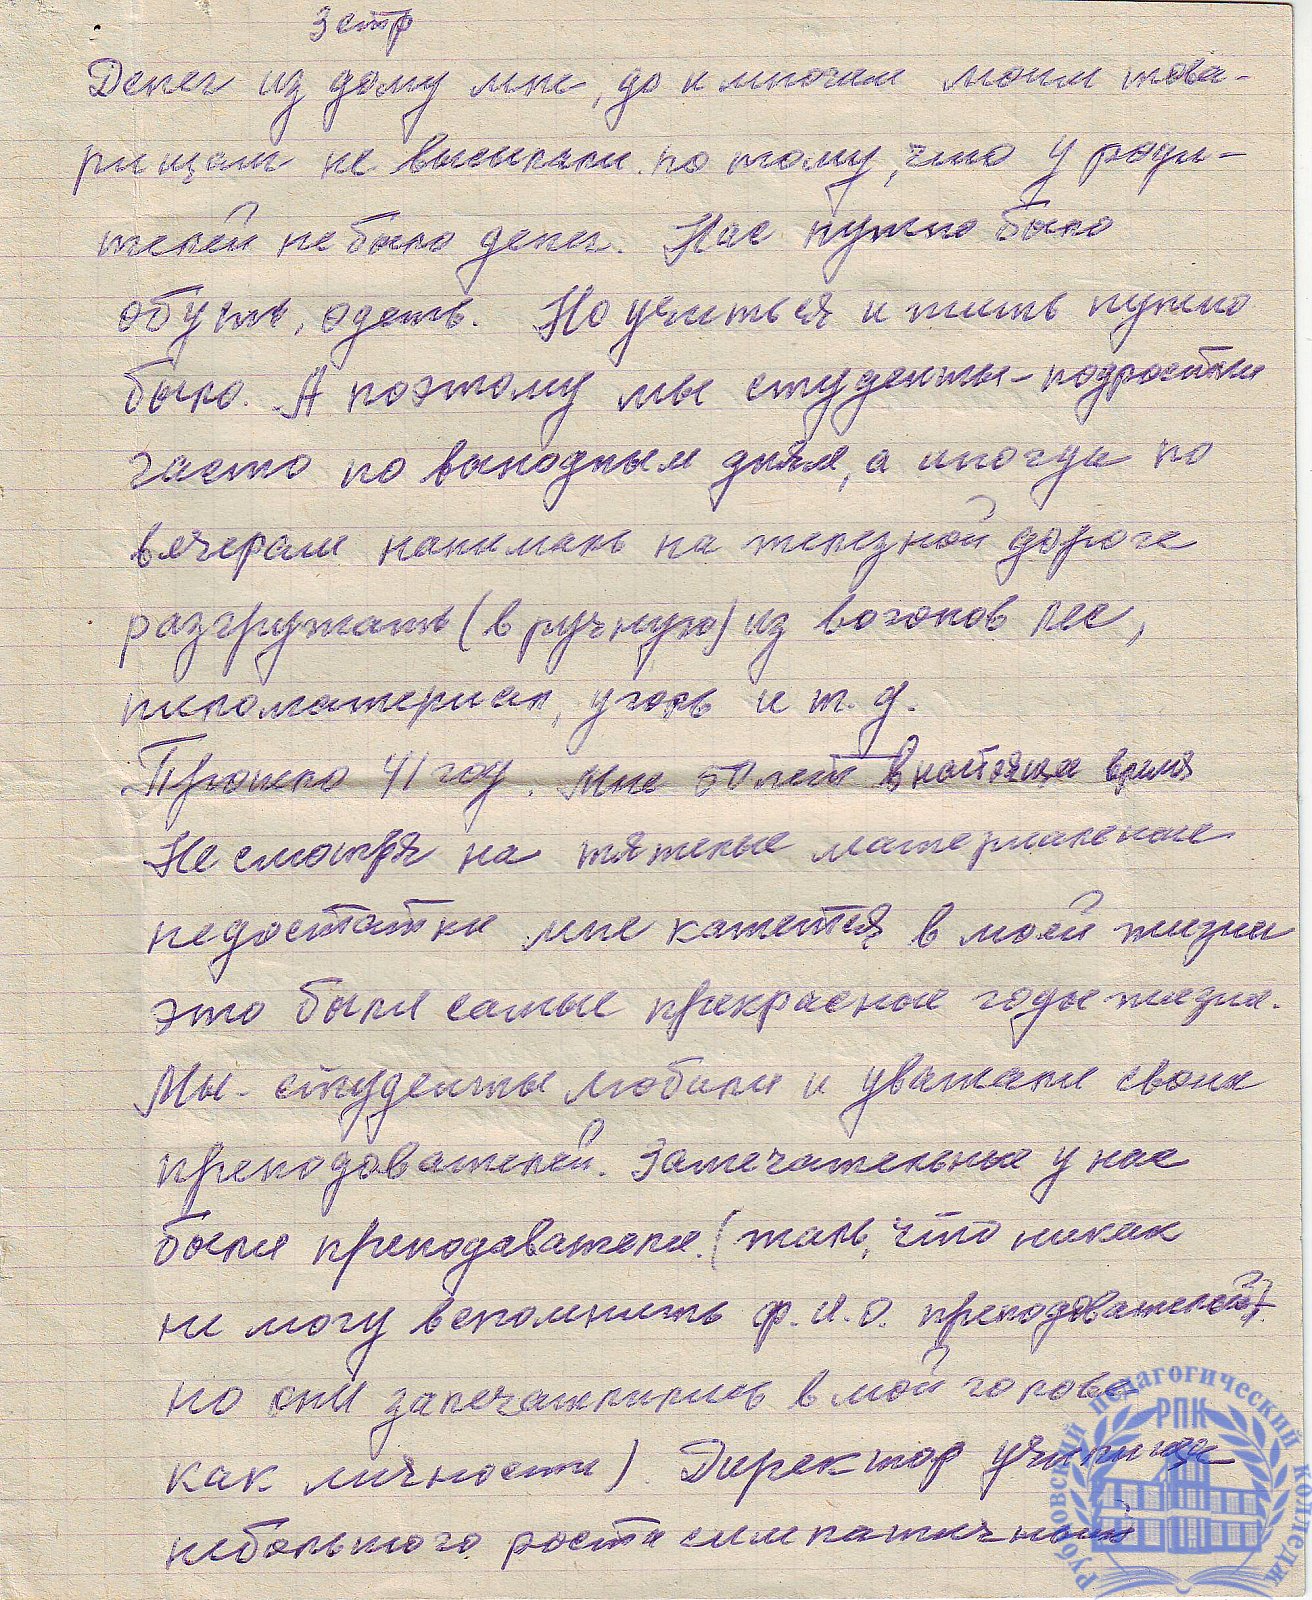 3 стр
Денег из дому мне, да и многим моим това-
рищам не высылали. по тому, что у роди-
телей не было денег. Нас нужно было
обуть, одеть. Но учиться и жить нужно
было. А поэтому мы студенты-подростки
часто по выходным дням, а иногда по
вечерам нанималь на железной дороге
разгружать (в ручную) из вогонов лес,
пиломатериал, уголь и т.д.
Прошло 41 год. Мне 60 лет в настоящее время
Не смотря на тяжелые материальные
недостатки мне кажется в моей жизни
это были самые прекрасные годы жизни.
Мы - студенты любили и уважали своих
преподавателей. Замечательные у нас
были преподаватели. (жаль, что никак
не могу вспомнить ф.и.о. преподавателей).
но они запечатлились в мой голове
как личности). Директор училища
небольшого роста симпатичный
Рубцовский педагогический колледж
РПК